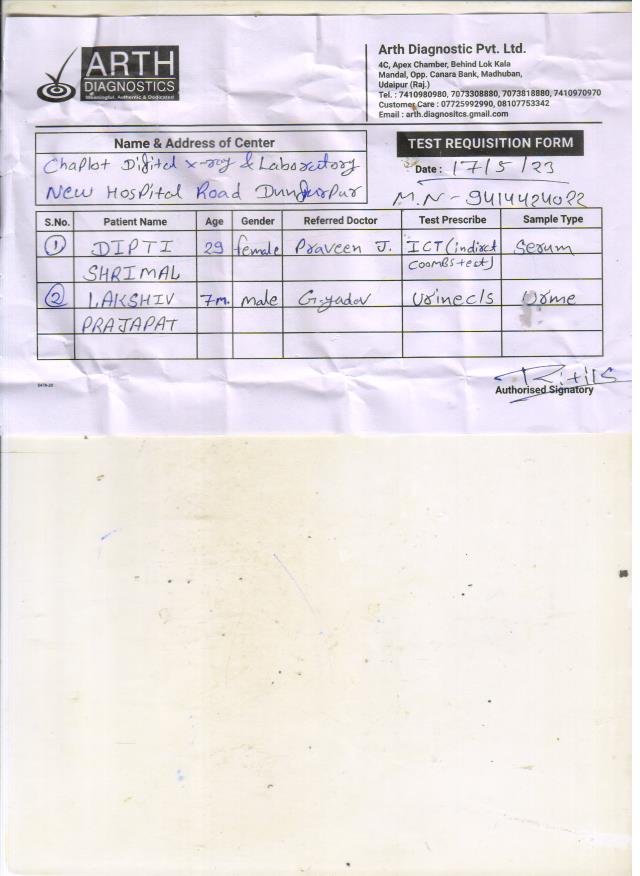 ARTH
DIAGNOSTICS
Meaningful, Authentic & Dedicated
Arth Diagnostic Pvt. Ltd.
4C, Apex Chamber, Behind Lok Kala
Mandal, Opp. Canara Bank, Madhuban,
Udaipur (Raj.)
Tel. : 7410980980, 7073308880, 7073818880, 7410970970
Customer Care : 07725992990, 08107753342
Email : arth.diagnositcs.gmail.com
Name & Address of Center
Chaplot Digital x-ray & Laboratory
New Hospital Road Dungurpur
TEST REQUISITION FORM
Date : 17/5/23
M.N - 9414424022
S.No. Patient Name Age Gender Referred Doctor Test Prescribe Sample Type
1 DIPTI 29 female Praveen J. ICT (indirct Serum
SHRIMAL coombs test)
2 LAKSHIV 7m. male G.yadav Urine c/s Urine
PRAJAPAT
Authorised Signatory